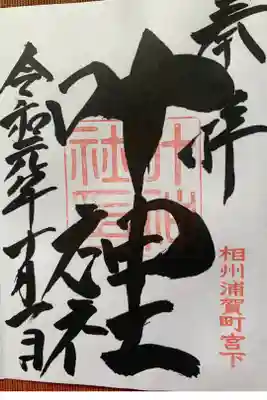 奉拝
相州浦賀町宮下
叶神社
叶神社印
令和元年十月一日